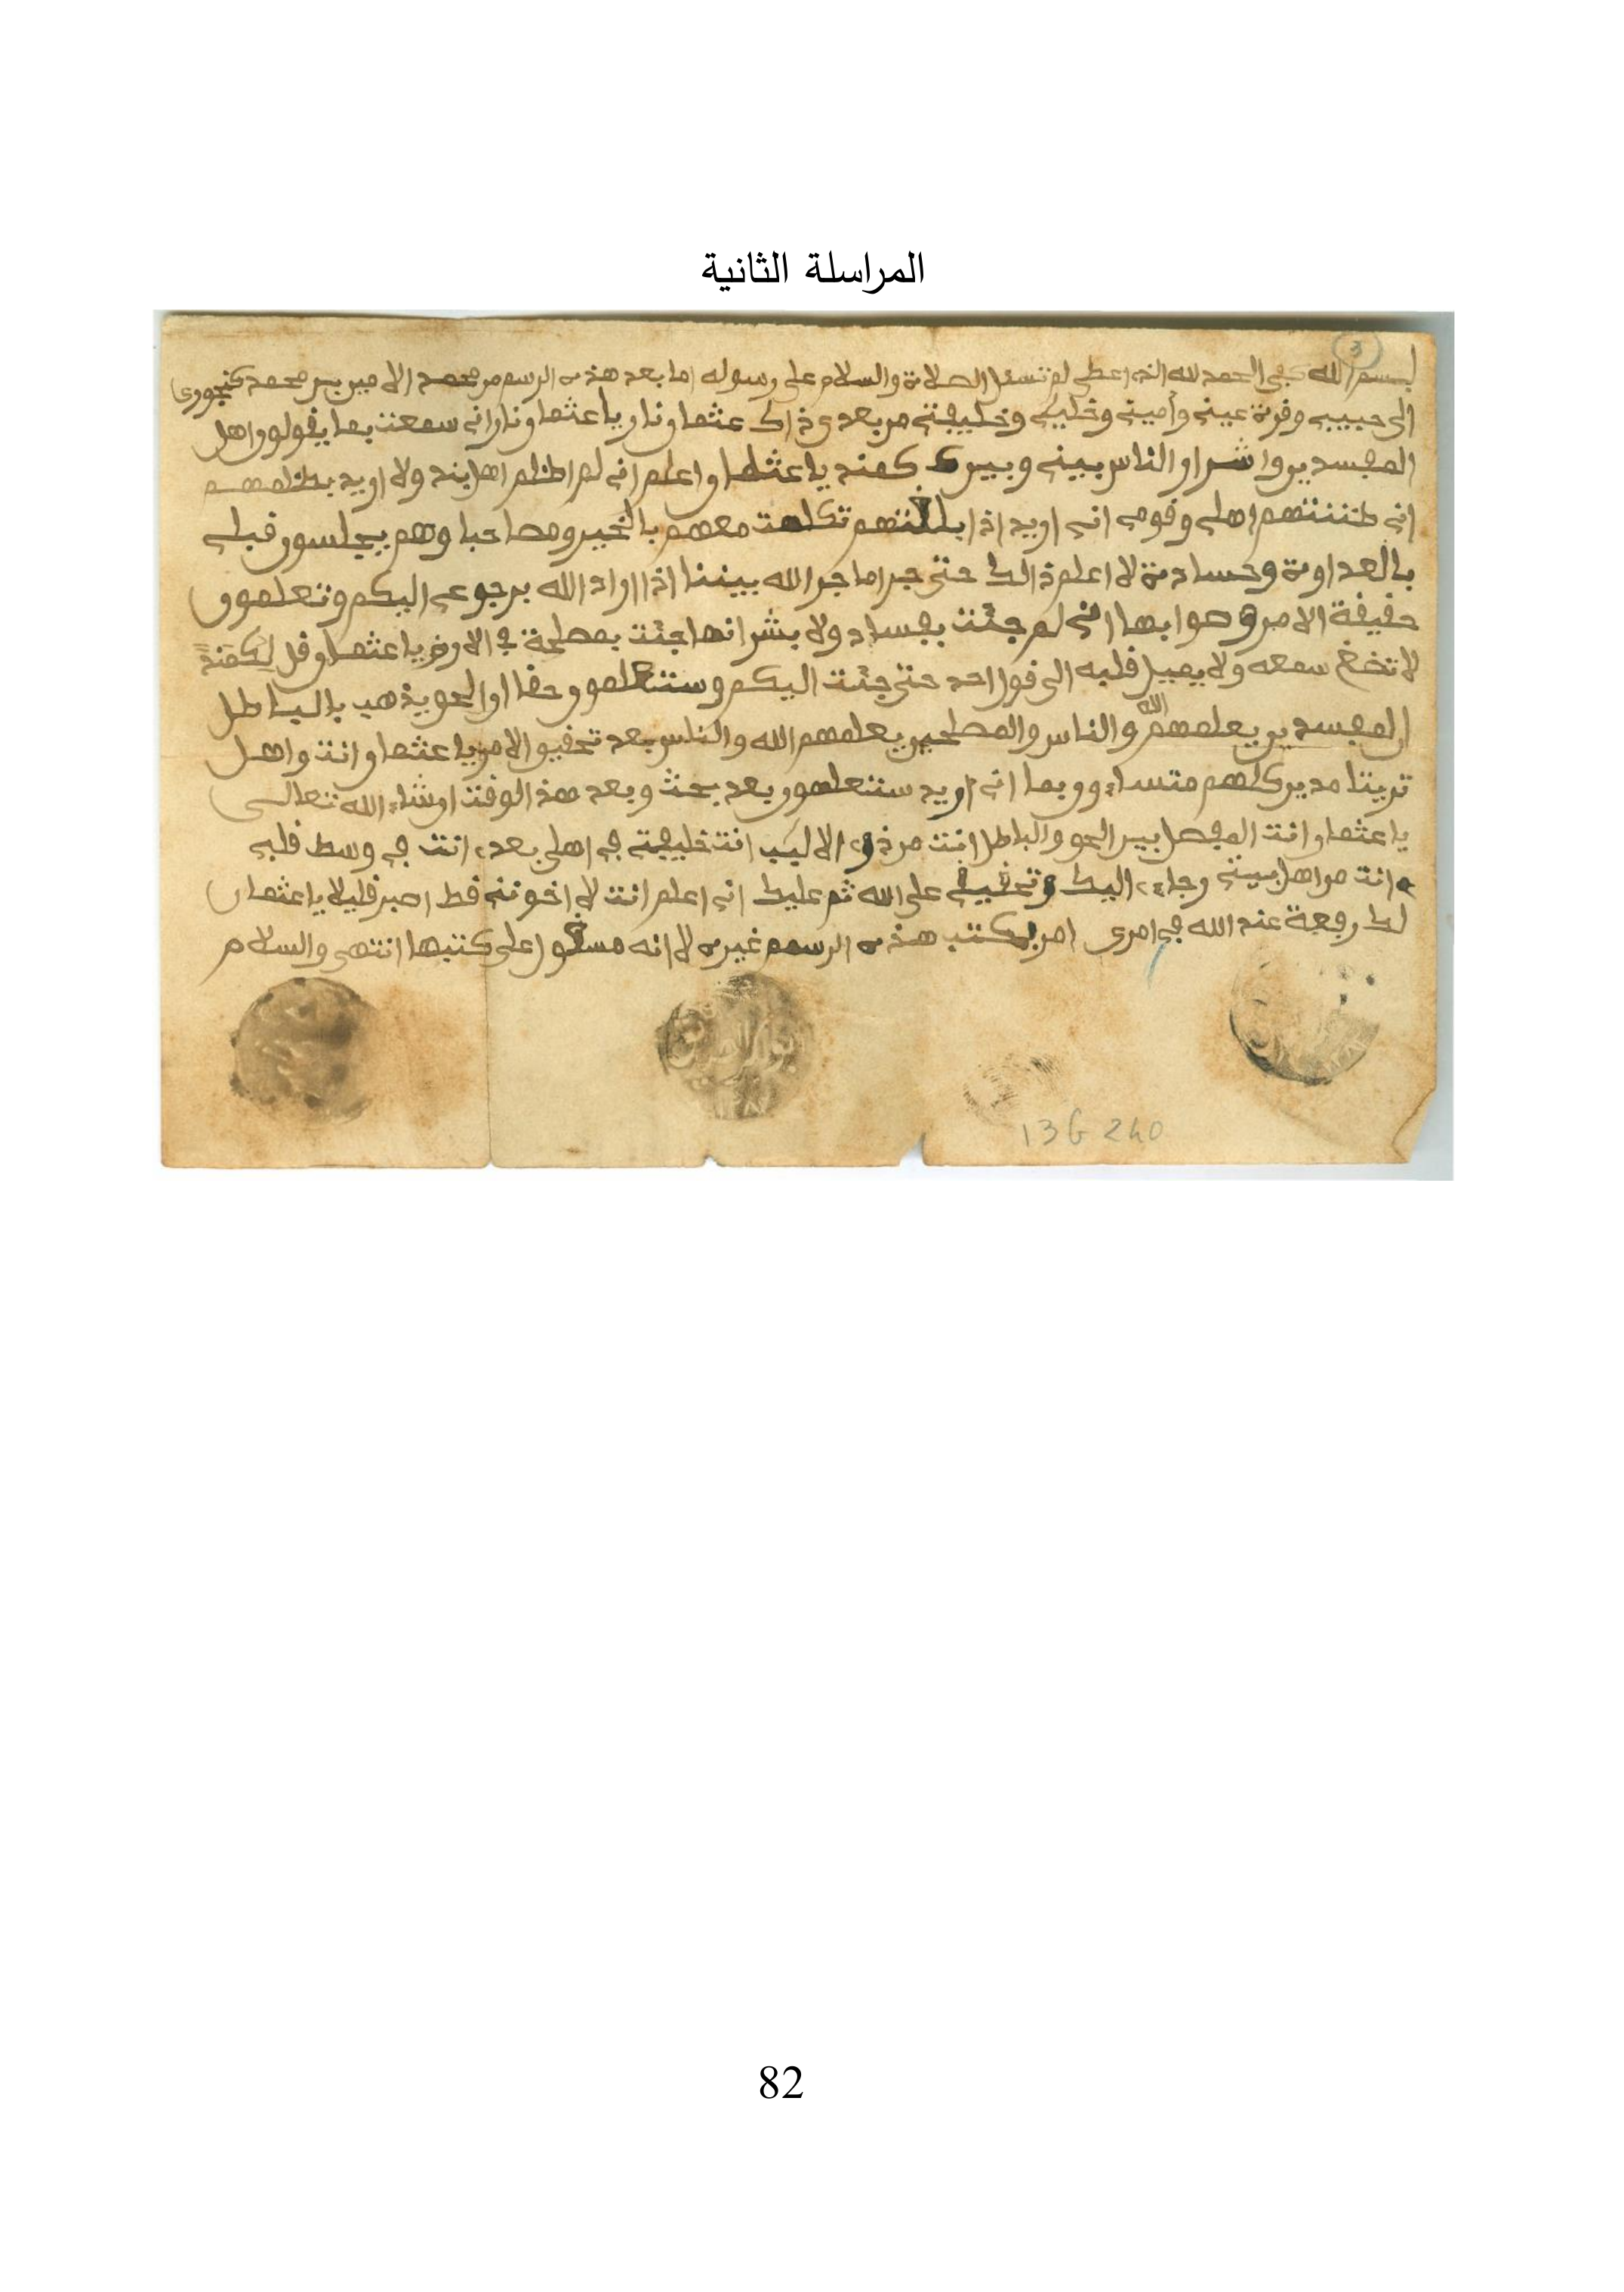 المراسلة الثانية
3
بسم الله كفى الحمد لله الذي اعطى الصلاة والسلام على رسوله اما بعد هذه الرسم من محمد الامين بن محمد
الى حبيبي وقرة عيني وأميني وخليلي وخليفتي من بعدي ذاك عثمان ياعثمان اني سمعت بما يقولون اهل
المفسدين الناس بيني وبين كمند ياعثمان واعلم اني لم اظلم اهل بند ولا اريد بظلمهم
اني ظننتهم اهلي وقومي اني اريد اذا تكلمت معهم بالخير ومصاحبا وهم يجلسون قبلي
بالعداوة وحسادة لا اعلم ذالك حتى جرا ما جرا الله بيننا اذا اراد الله برجوعي اليكم وتعلمون
حقيقة الامر وصوابها اني لم جئت بفساد ولا بشر انما جئت بمصلحة في الارض ياعثمان قل لكمند
لا سمعه ولا يميل قلبه الى قول احد حتى جئت اليكم وستعلمون حقا ان الحق يذهب بالباطل
ان المفسدين يعلمهم الله والناس والمصلحين يعلمهم الله والناس بعد تحقيق الامر ياعثمان انت واهل
كلهم اني اريد ستعلمون بعد بحث وبعد هذ الوقت ان شاء الله تعالى
ياعثمان انت المفصل بين الحق والباطل انت من ذوي الالبب انت خليفتي في اهلي بعدي انت في وسط قلبي
انت من اهل بيتي رجاءي اليك على الله ثم عليك اني اعلم انت لا اخونني قط اصبر قليلا ياعثمان
لك رفعة عند الله في امري امر بكتب هذه الرسم غيره لانه على كتبها انتهى والسلام
13G 240
82